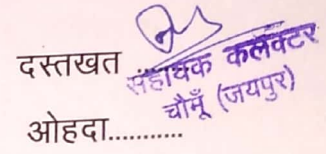 दस्तखत
सहायक कलेक्टर
चौमूँ (जयपुर)
ओहदा...........